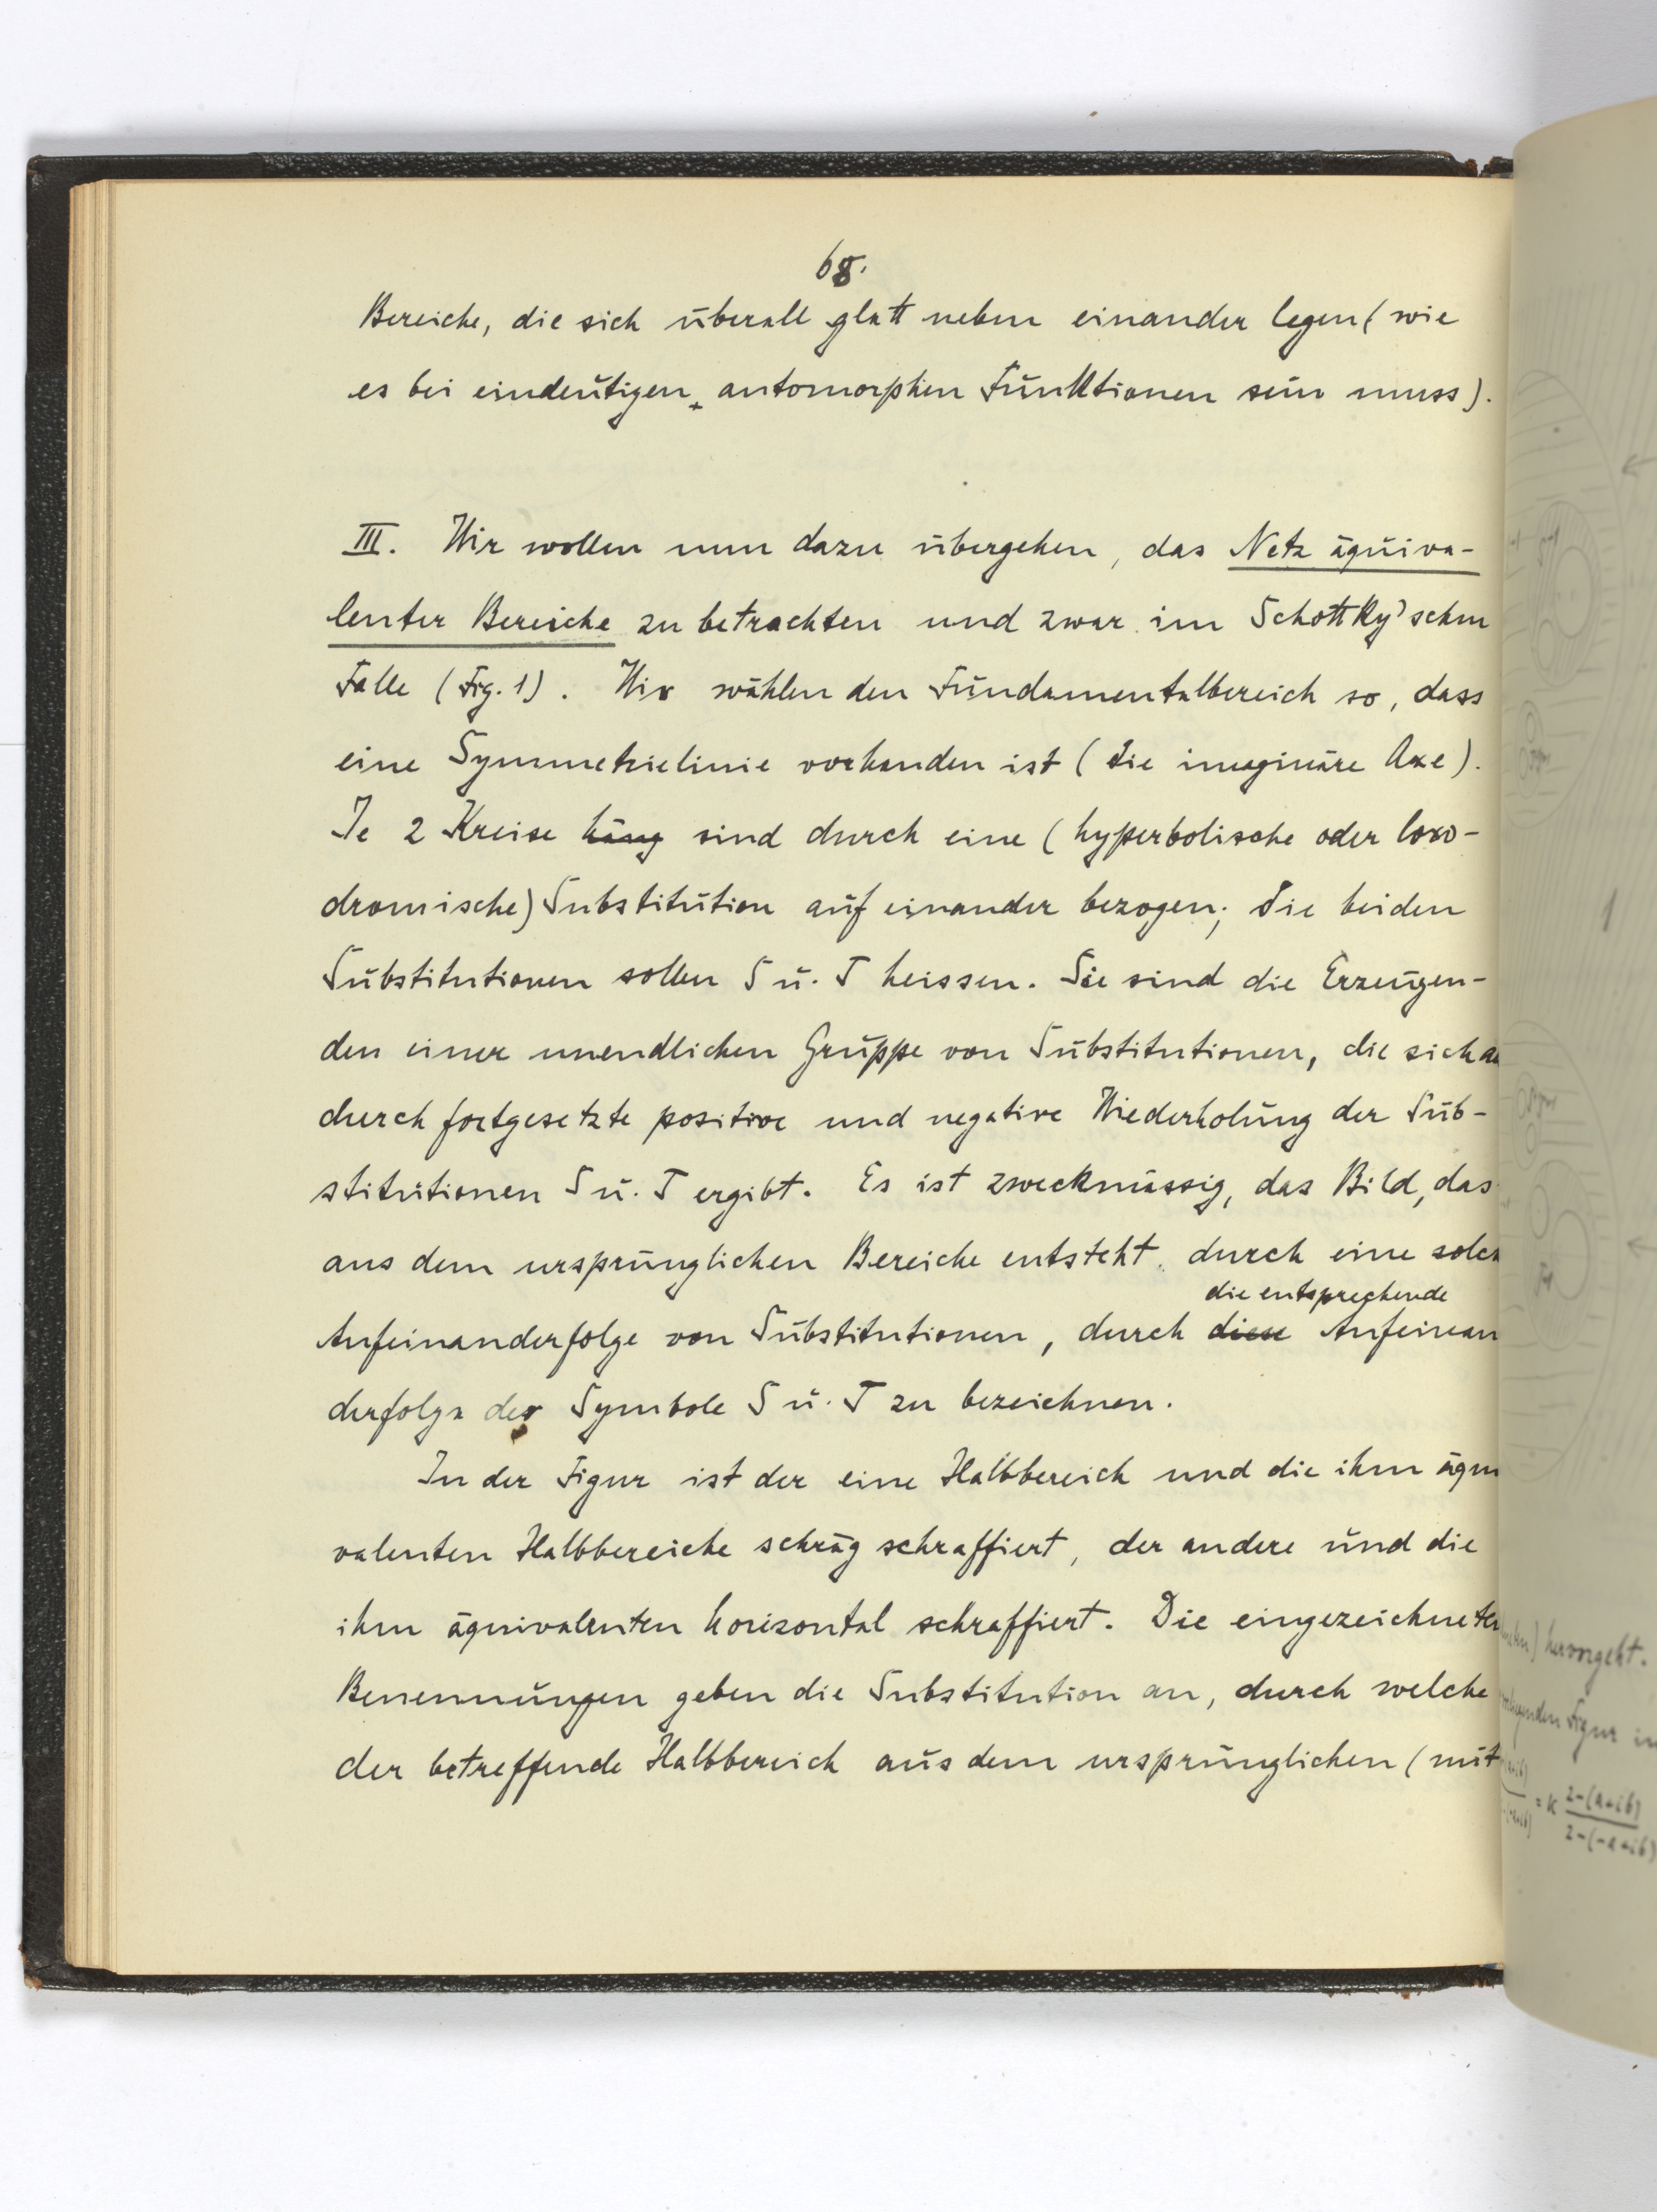 68.
Bereiche, die sich überall glatt neben einander legen (wie
es bei eindeutigen automorphen Funktionen sein muss).
III. Wir wollen nun dazu übergehen, das Netz äquiva-
lenter Bereiche zu betrachten und zwar im Schottky'schen
Falle (Fig. 1). Wir wählen den Fundamentalbereich so, dass
eine Symmetrielinie vorhanden ist (die imaginäre Axe).
Je 2 Kreise häng sind durch eine (hyperbolische oder loxo-
dromische) Substitution auf einander bezogen; die beiden
Substitutionen sollen S u. T heissen. Sie sind die Erzeugen-
den einer unendlichen Gruppe von Substitutionen, die sich
durch fortgesetzte positive und negative Wiederholung der Sub-
stitutionen S u. T ergibt. Es ist zweckmässig, das Bild, das
aus dem ursprünglichen Bereiche entsteht durch eine solch
die entsprechende
Aufeinanderfolge von Substitutionen, durch diese Aufeinan
derfolge der Symbole S u. T zu bezeichnen.
In der Figur ist der eine Halbbereich und die ihm äqui
valenten Halbbereiche schräg schraffiert, der andere und die
ihm äquivalenten horizontal schraffiert. Die eingezeichneten
Benennungen geben die Substitution an, durch welche
der betreffende Halbbereich aus dem ursprünglichen (mit
1
hervorgeht.
Figur